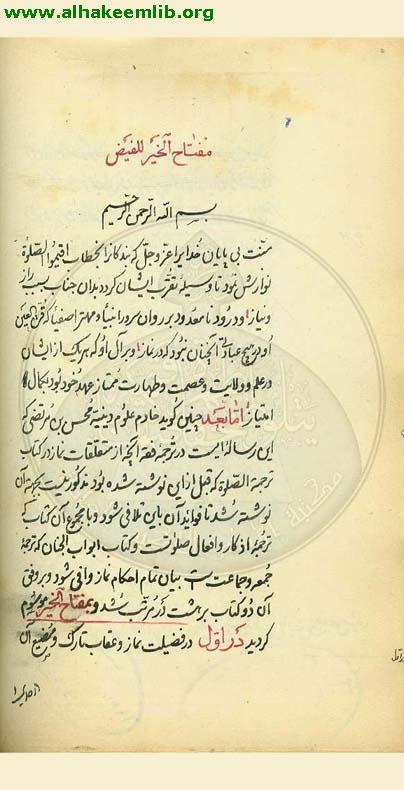 www.alhakeemlib.org
مفتاح الخیر للفیض
بسم الله الرحمن الرحیم
منت بی پایان خدایرا عز و جل که بندکانرا بخطاب اقیموا الصلوة
نوازش نمود تا وسیلهٔ تقرب ایشان کردد بدان جناب بسبب راز
و نیاز و درود نامعدود بر روان سرور انبیا و مهتر اصفیا که قرة العین
او در هیچ عبادتی آنچنان نبود که در نماز و بر آل او که هر یک از ایشان
در علم و ولایت و عصمت و طهارت ممتاز عهد خود بود بکمال
امتیاز اما بعد چنین کوید خادم علوم دینیه محسن بن مرتضی که
این رساله ایست در ترجمهٔ فقه آنچه از متعلقات نماز در کتاب
ترجمة الصلوة که قبل از این نوشته شده بود مذکور نیست بجهة آن
نوشته شد تا فواید آن باین تلافی شود و با مجموع آن کتاب که
ترجمهٔ اذکار و افعال صلوتست و کتاب ابواب الجنان که ترجمهٔ
جمعه و جماعت است بیان تمام احکام نماز وافی شود و بر وفق
آن دو کتاب بر هشت در مرتب شد و بمفتاح الخیر موسوم
کردید در اول در فضیلت نماز و عقاب تارک و مضیع آن